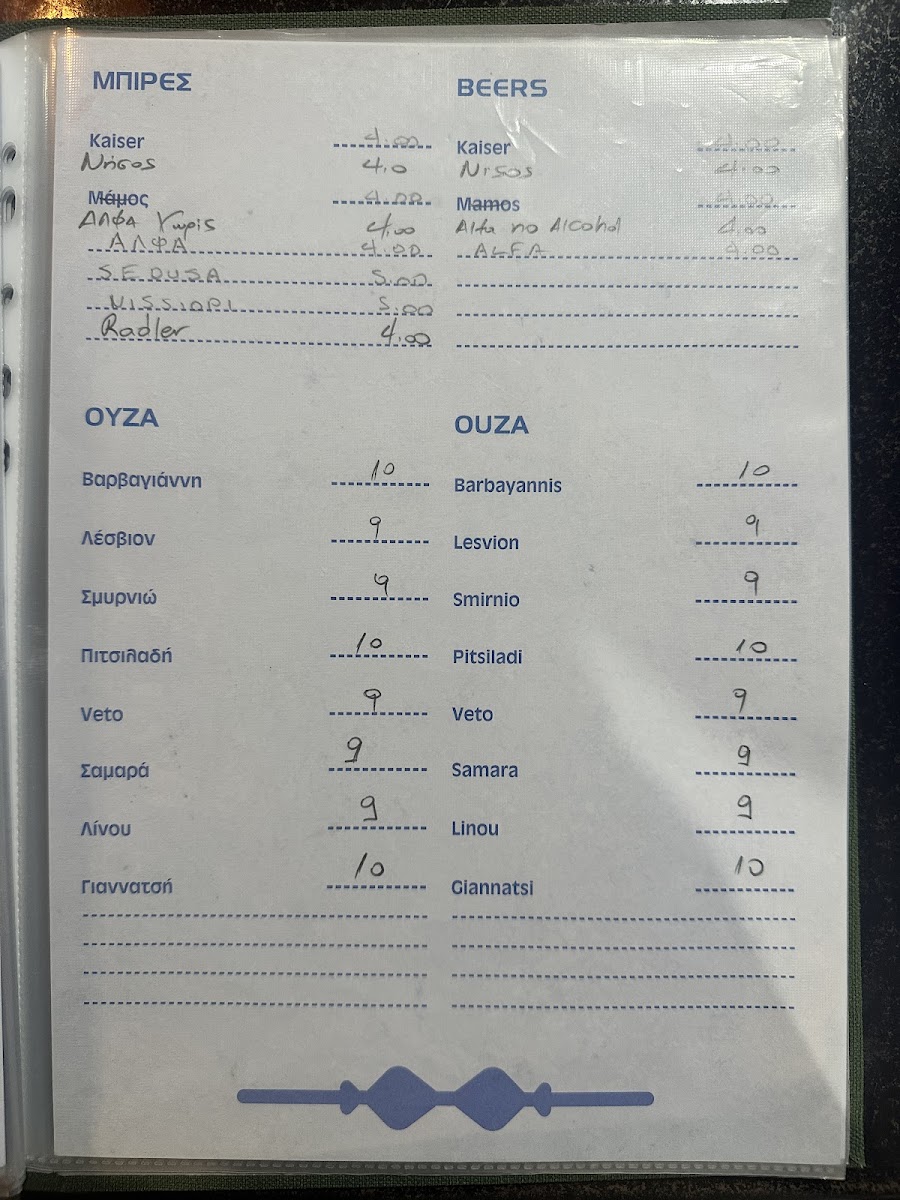 ΜΠΙΡΕΣ
Kaiser 4.00
Νήσος 4.0
Μάμος 4.00
ΑΛΦΑ Χωρίς 4.00
ΑΛΦΑ 4.00
5.00
5.00
Radler 4.00
BEERS
Kaiser 4.00
Nisos 4.00
Mamos 4.00
Alfa no Alcohol 4.00
ALFA 4.00
ΟΥΖΑ
Βαρβαγιάννη 10
Λέσβιον 9
Σμυρνιώ 9
Πιτσιλαδή 10
Veto 9
Σαμαρά 9
Λίνου 9
Γιαννατσή 10
OUZA
Barbayannis 10
Lesvion 9
Smirnio 9
Pitsiladi 10
Veto 9
Samara 9
Linou 9
Giannatsi 10